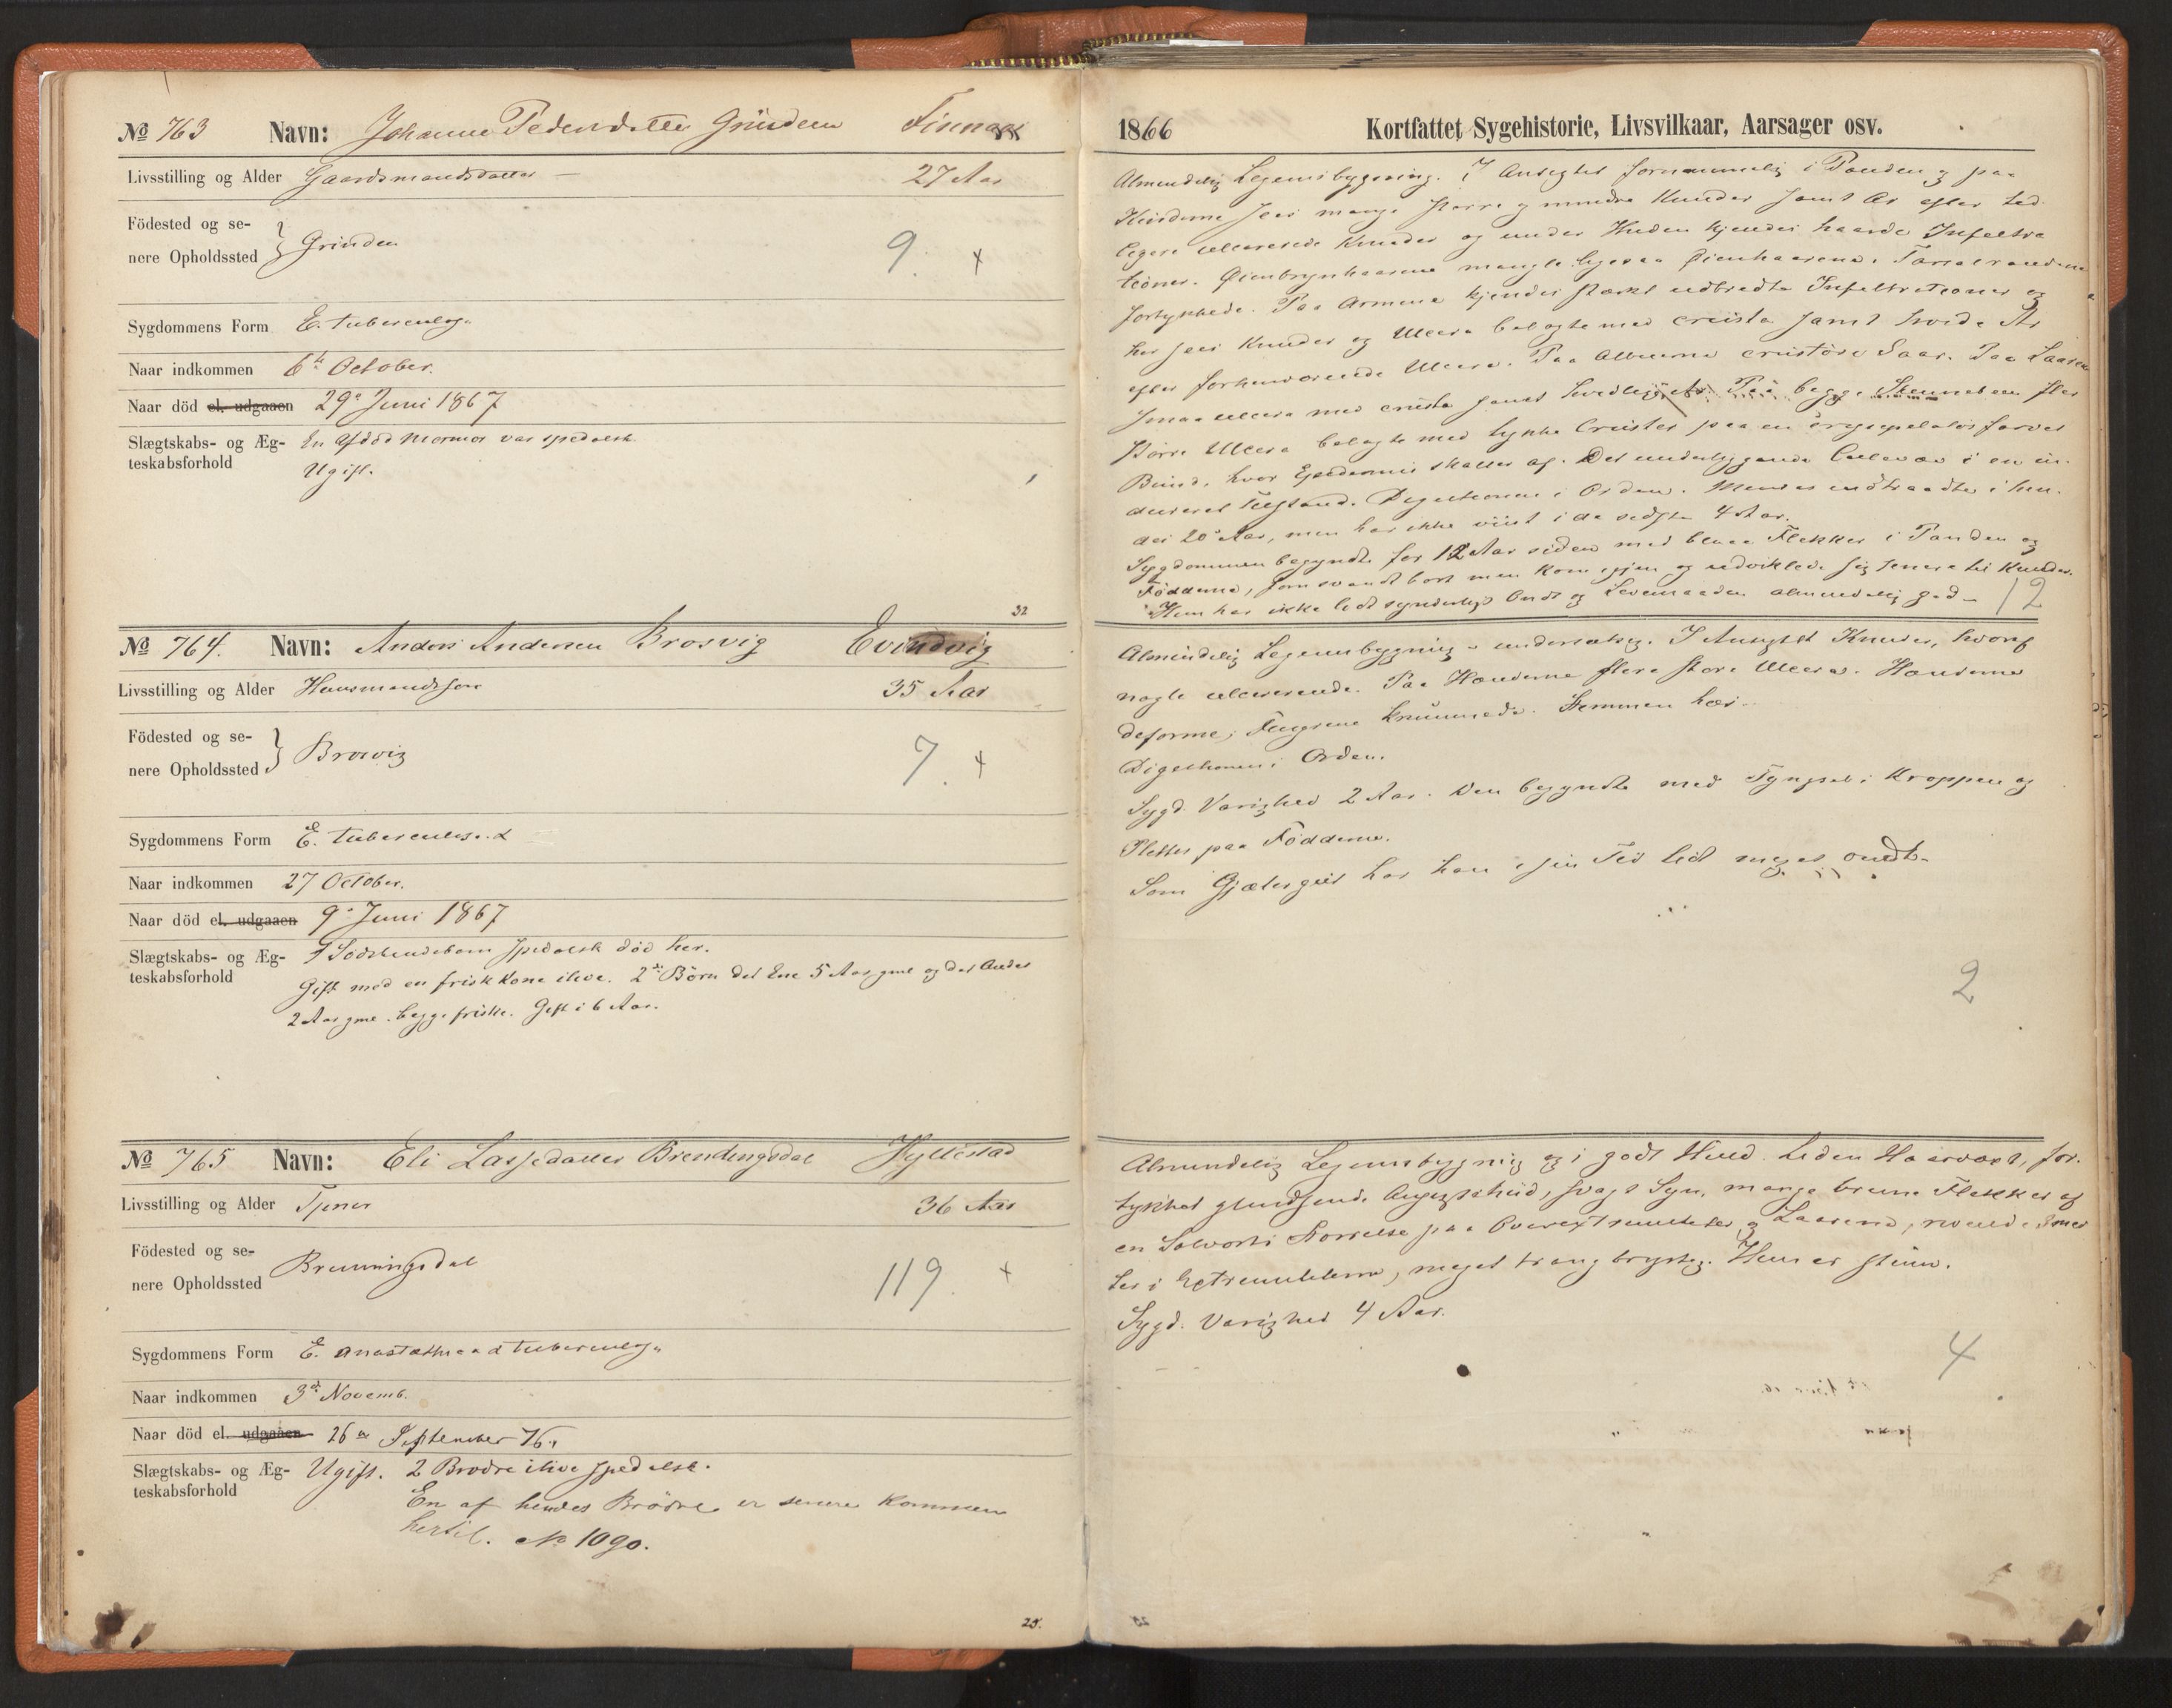 No 763 Navn: Johanne Pedersdatter Grinden Finnaas
Livsstilling og Alder Gaardmandsdatter - 27 Aar
Födested og se-
nere Opholdssted } Grinden 9. x
Sygdommens Form E. tuberculosa
Naar indkommen 6te October.
Naar död el. udgaaen 29de Juni 1867
Slægtskabs- og Æg- En afdöd Mormor var spedalsk
teskabsforhold Ugift.
32
No 764. Navn: Anders Andersen Brosvig Evindvig
Livsstilling og Alder Huusmandssön 35 Aar
Födested og se-
nere Opholdssted } Brosvig 7. x
Sygdommens Form E. tuberculosa
Naar indkommen 27 October.
Naar död el. udgaaen 9de Juni 1867
Slægtskabs- og Æg- 1 Södskendebarn spedalsk död her.
teskabsforhold Gift med en frisk Kone ilive. 2de Börn det Ene 5 Aar gml og det Andet
2 Aar gml. begge friske. Gift i 6 Aar.
No 765 Navn: Eli Lassedatter Brendingsdal Hyllestad
Livsstilling og Alder Tjener 36 Aar
Födested og se-
nere Opholdssted Brenningsdal 119. x
Sygdommens Form E. anæsthetica & tuberculosa
Naar indkommen 3de Novemb.
Naar död el. udgaaen 26de September 76.
Slægtskabs- og Æg- Ugift. 2 Brödre ilive spedalsk.
teskabsforhold En af hendes Brödre er senere kommen
hertil. No 1090.
25.
1866 Kortfattet Sygehistorie, Livsvilkaar, Aarsager osv.
Almindelig Legemsbygning. I Ansigtet fornemmelig i Panden og paa
Kinderne sees mange större og mindre Knuder samt Ar efter tid-
ligere ulcererede Knuder og under Huden kjendes haarde Infiltra
tioner. Öienbrynhaarene mangle ligesaa Öienhaarene. Tarsalrandene
fortykkede. Paa Armene kjendes stærkt udbredte Infiltrationer og
her sees Knuder og Ulcera belagte med crusta samt hvide Ar
efter forhenværende Ulcera. Paa Albuerne crustöse Saar. Paa Laarene
smaa ulcera med crusta samt hvidlige Ar. Paa begge Skinneben flere
större Ulcera belagte med tykke Cruster paa en erysipelatös farvet
Bund, hvor Epidermis skaller af. Det underliggende Cellevæv i en in-
dureret Tilstand. Digestionen i Orden. Menses indtraadte i hen-
des 20de Aar, men har ikke viist i de sidste 4 Aar.
Sygdommen begyndte for 12 Aar siden med blaae Flekker i Panden og
Födderne, som svandt bort men kom igjen og udviklede sig senere til Knuder.
Hun har ikke lidt synderligt Ondt og Levemaaden almindelig god- 12
Almindelig Legemsbygning - undersætsig. I Ansigtet Knuder, hvoraf
nogle ulcererende. Paa Hænderne flere store Ulcera. Hænderne
deforme, Fingrene krummede. Stemmen hæs.
Digestionen i Orden.
Sygd. Varighed 2 Aar. Den begyndte med Tyngsel i Kroppen og
Pletter paa Födderne.
Som Gjætergut har han i sin Tid lidt meget ondt.
2
Almindelig Legemsbygning og i godt Huld. Liden Haarvæxt, for-
tykket glindsende Ansigtshud, svagt Syn, mange brune Flekker af
en Solvorts Störrelse paa Overextremiteter og Laarene, rivende Smer
ter i Extremiteterne, meget trangbrystig. Hun er stum.
Sygd. Varighed 4 Aar.
4